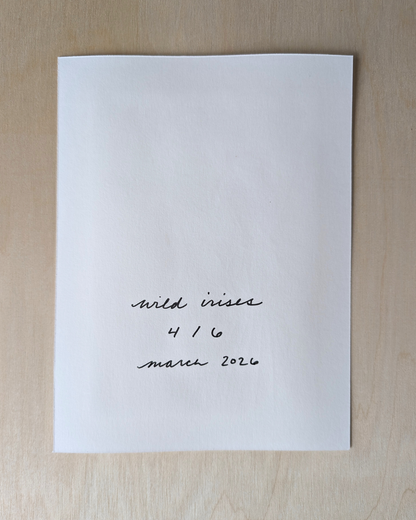 wild irises
4 / 6
march 2026